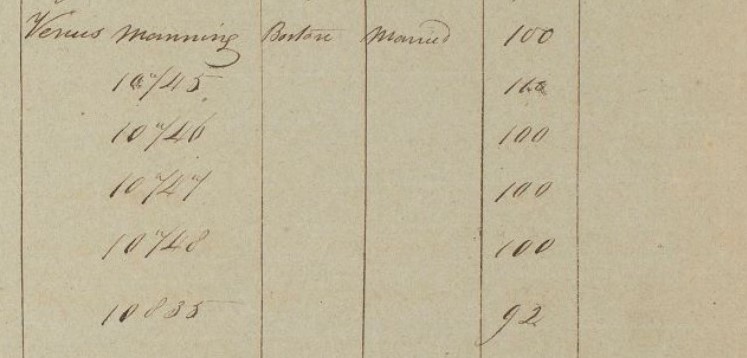 Venus Manning Boston Married 100
10745 100
10746 100
10747 100
10748 100
10835 92